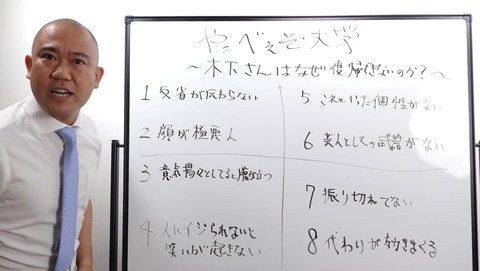 やべぇぞ大学
〜木下さんはなぜ復帰できないのか?〜
1 反省が伝わらない
2 顔が極悪人
3 意気揚々としてると腹立つ
4 人にイジられないと
笑いが起きない
5 これといった個性がない
6 芸人としての武器がない
7 振り切れてない
8 代わりが効きまくる